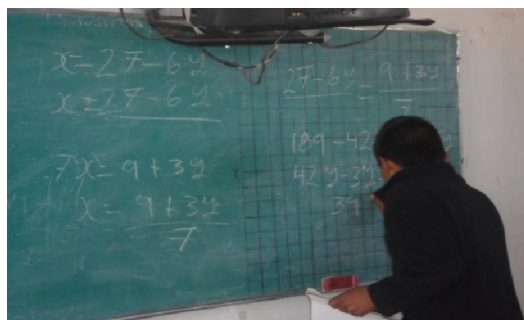 x = 27 - 6y
x = 27 - 6y
7x = 9 + 3y
x = 9 + 3y
7
27 - 6y = 9 + 3y
7
189 - 42
42y - 3y
39